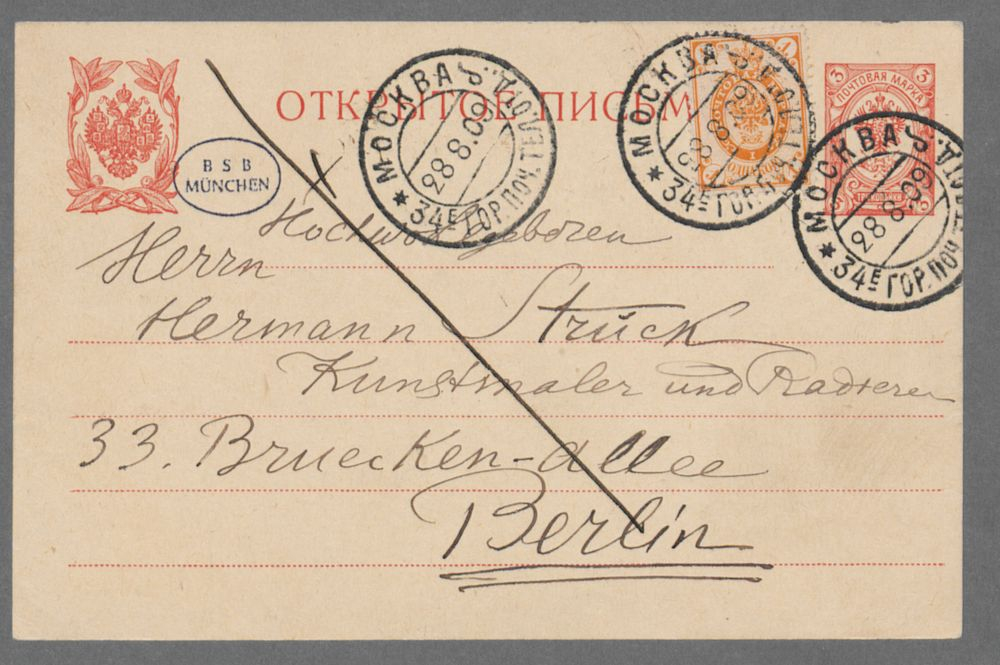 ОТКРЫТОЕ ПИСЬМО
BSB
MÜNCHEN
МОСКВА
28 8.09
34Е ГОР. ПОЧ. ТЕЛ. ОТД.
МОСКВА
28 8.09
34Е ГОР. ПОЧ.
1
ПОЧТОВАЯ МАРКА
3 3
МОСКВА
28 8.09
34Е ГОР. ПОЧ.
Hochwohlgeboren
Herrn
Hermann Struck
Kunstmaler und Radierer
33. Bruecken-allee
Berlin